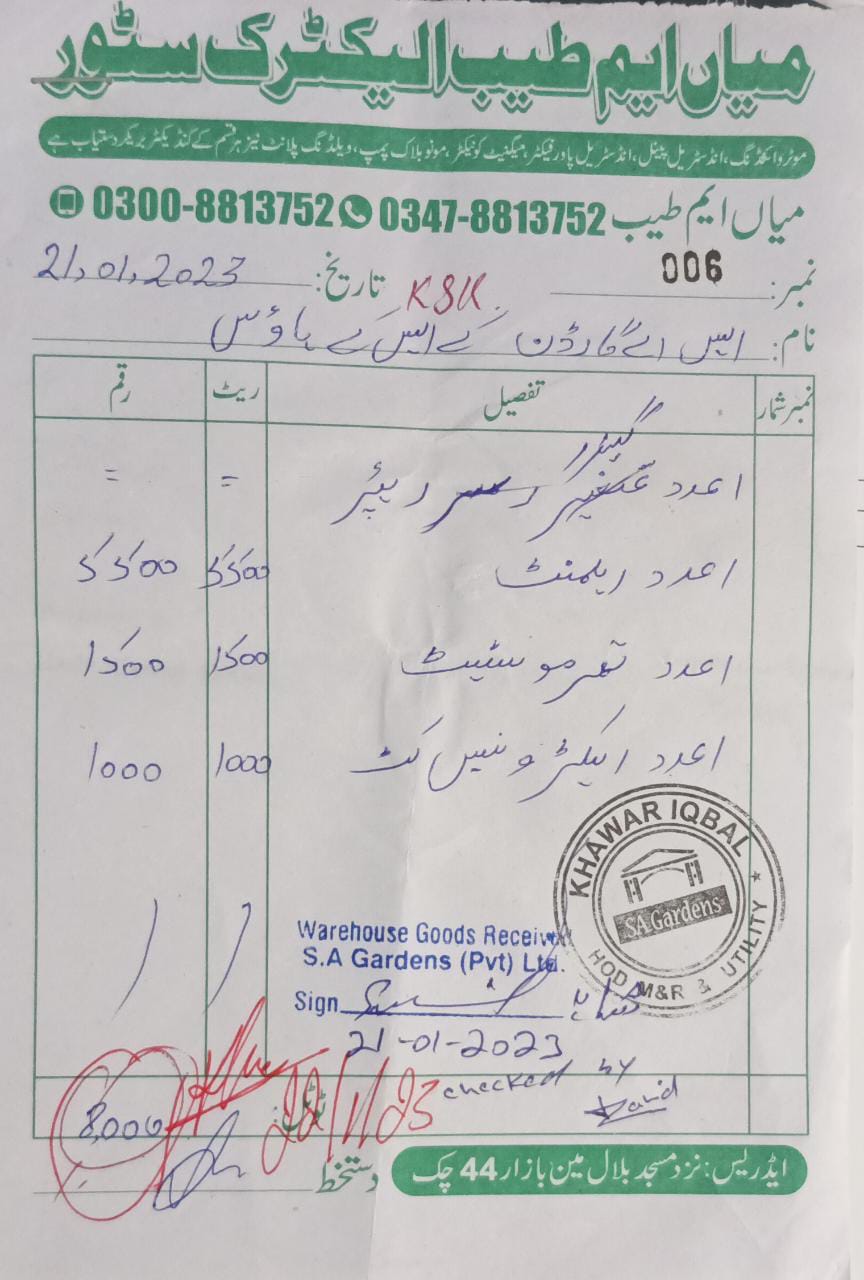 میاں ایم طیب الیکٹرک سٹور
موٹر وائنڈنگ، انڈسٹریل پینل، انڈسٹریل پاور فیکٹر، میگنیٹ کونیکٹر، مونوبلاک پمپ، ویلڈنگ پلانٹ نیز ہر قسم کے کنڈیکٹر بریکر دستیاب ہے
میاں ایم طیب 0347-8813752 0300-8813752
نمبر: 006 تاریخ: 21,01,2023
KSK
نام: ایس اے گارڈن کے ایس کے ہاؤس
نمبر شمار تفصیل ریٹ رقم
گیزر
1 عدد ریپئر = =
1 عدد ایلمنٹ 5500 5500
1 عدد تھرموسٹیٹ 1500 1500
1 عدد الیکٹرونیس کٹ 1000 1000
KHAWAR IQBAL
SA Gardens
HOD M&R & UTILITY
Warehouse Goods Received
S.A Gardens (Pvt) Ltd.
Sign
21-01-2023
checked by
ٹوٹل: 8,000
22/1/23
دستخط
ایڈریس: نزد مسجد بلال مین بازار 44 چک